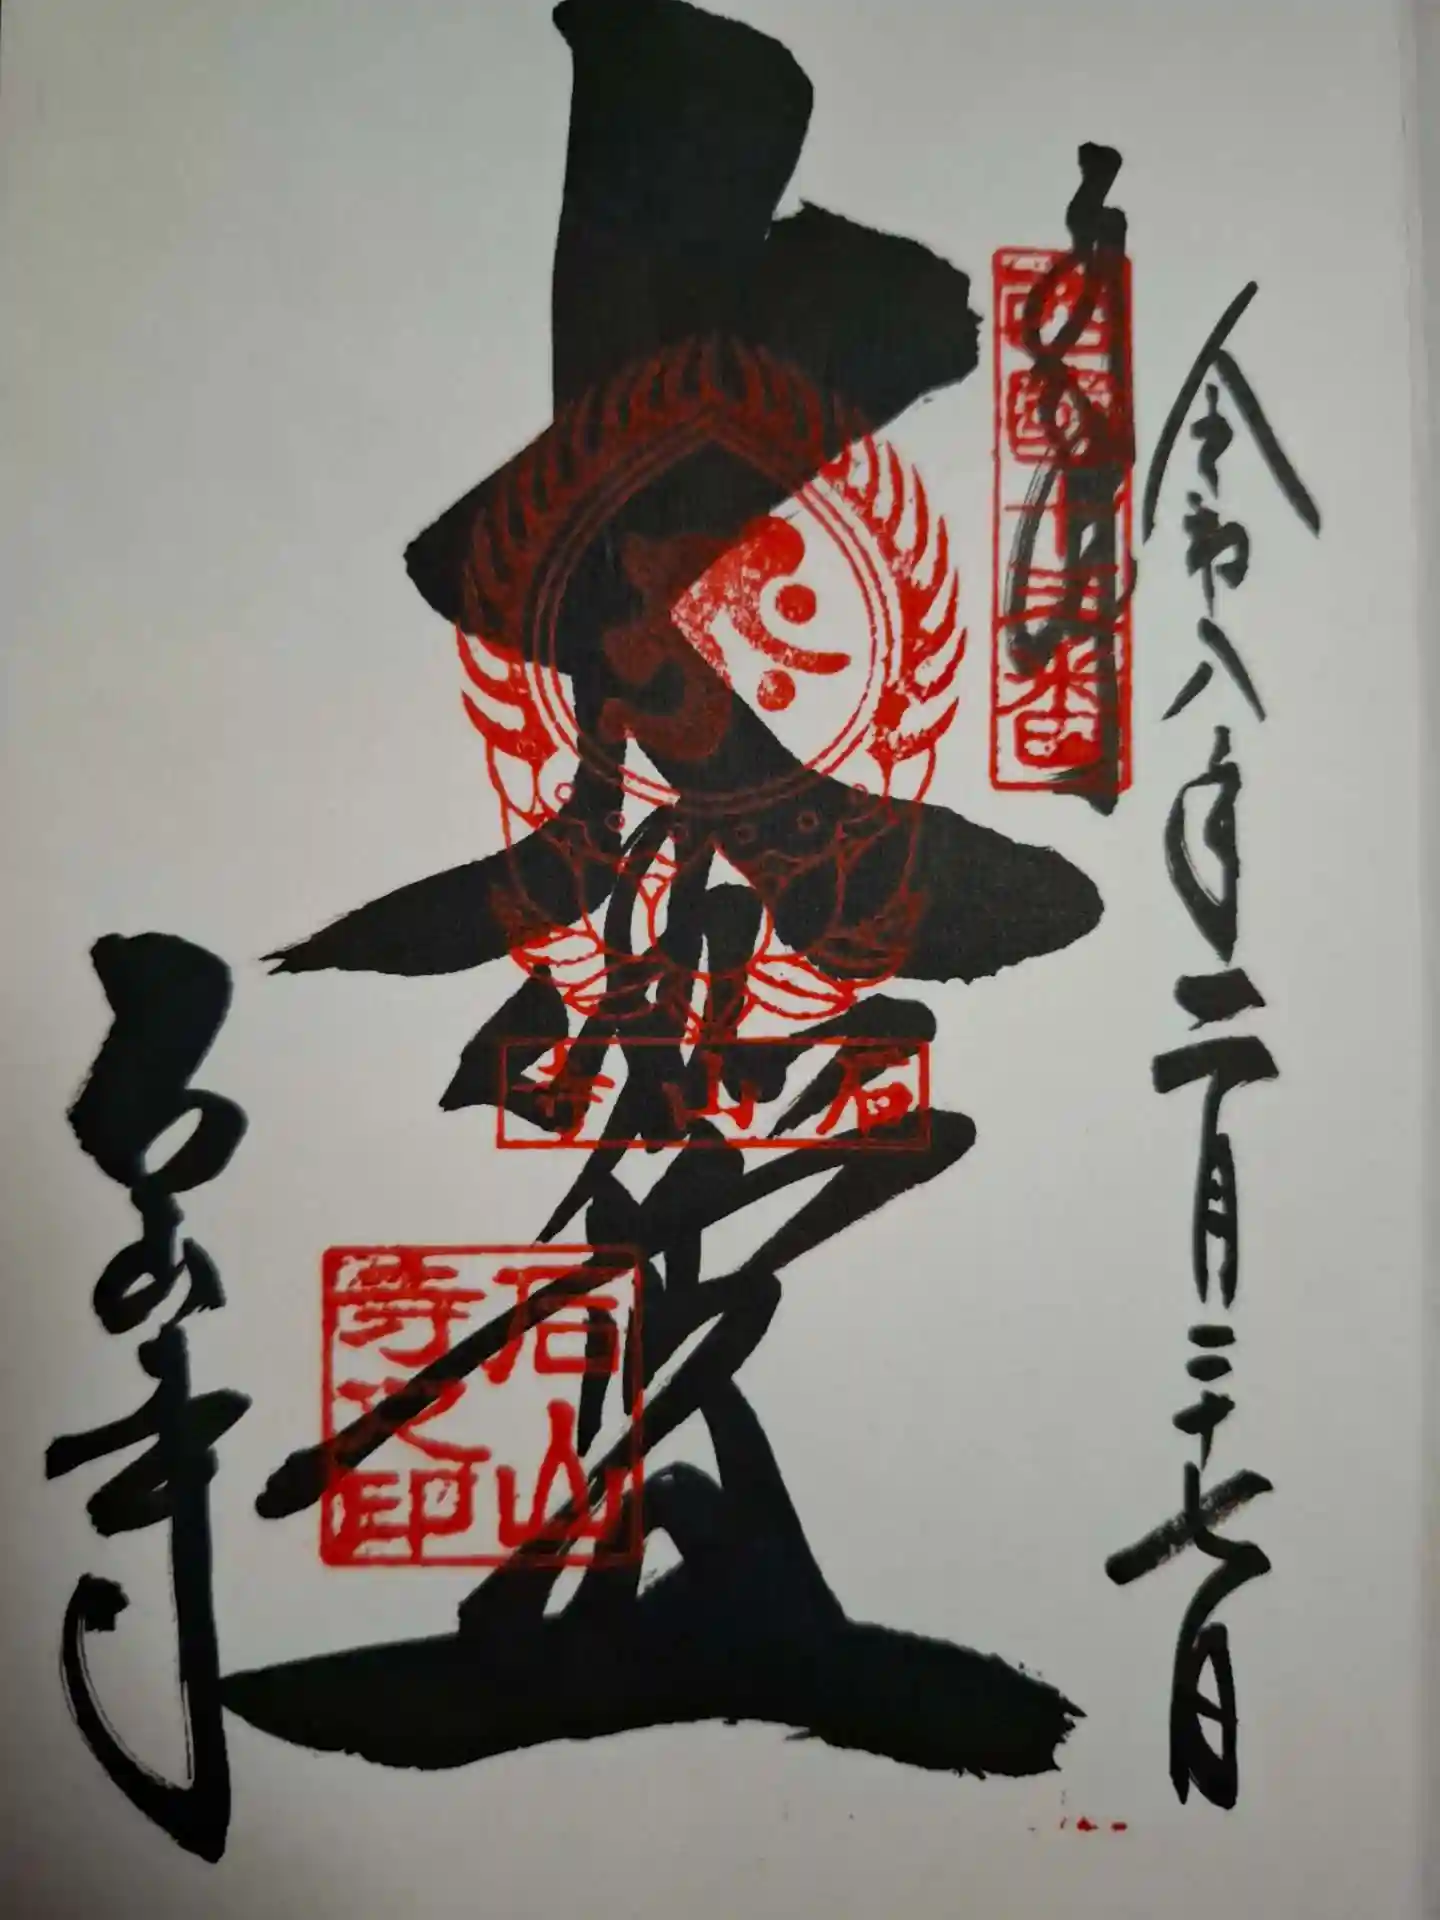 令和八年二月二十七日
奉拝
西國十三番
大伽藍
石山寺
石山寺之印
石山寺